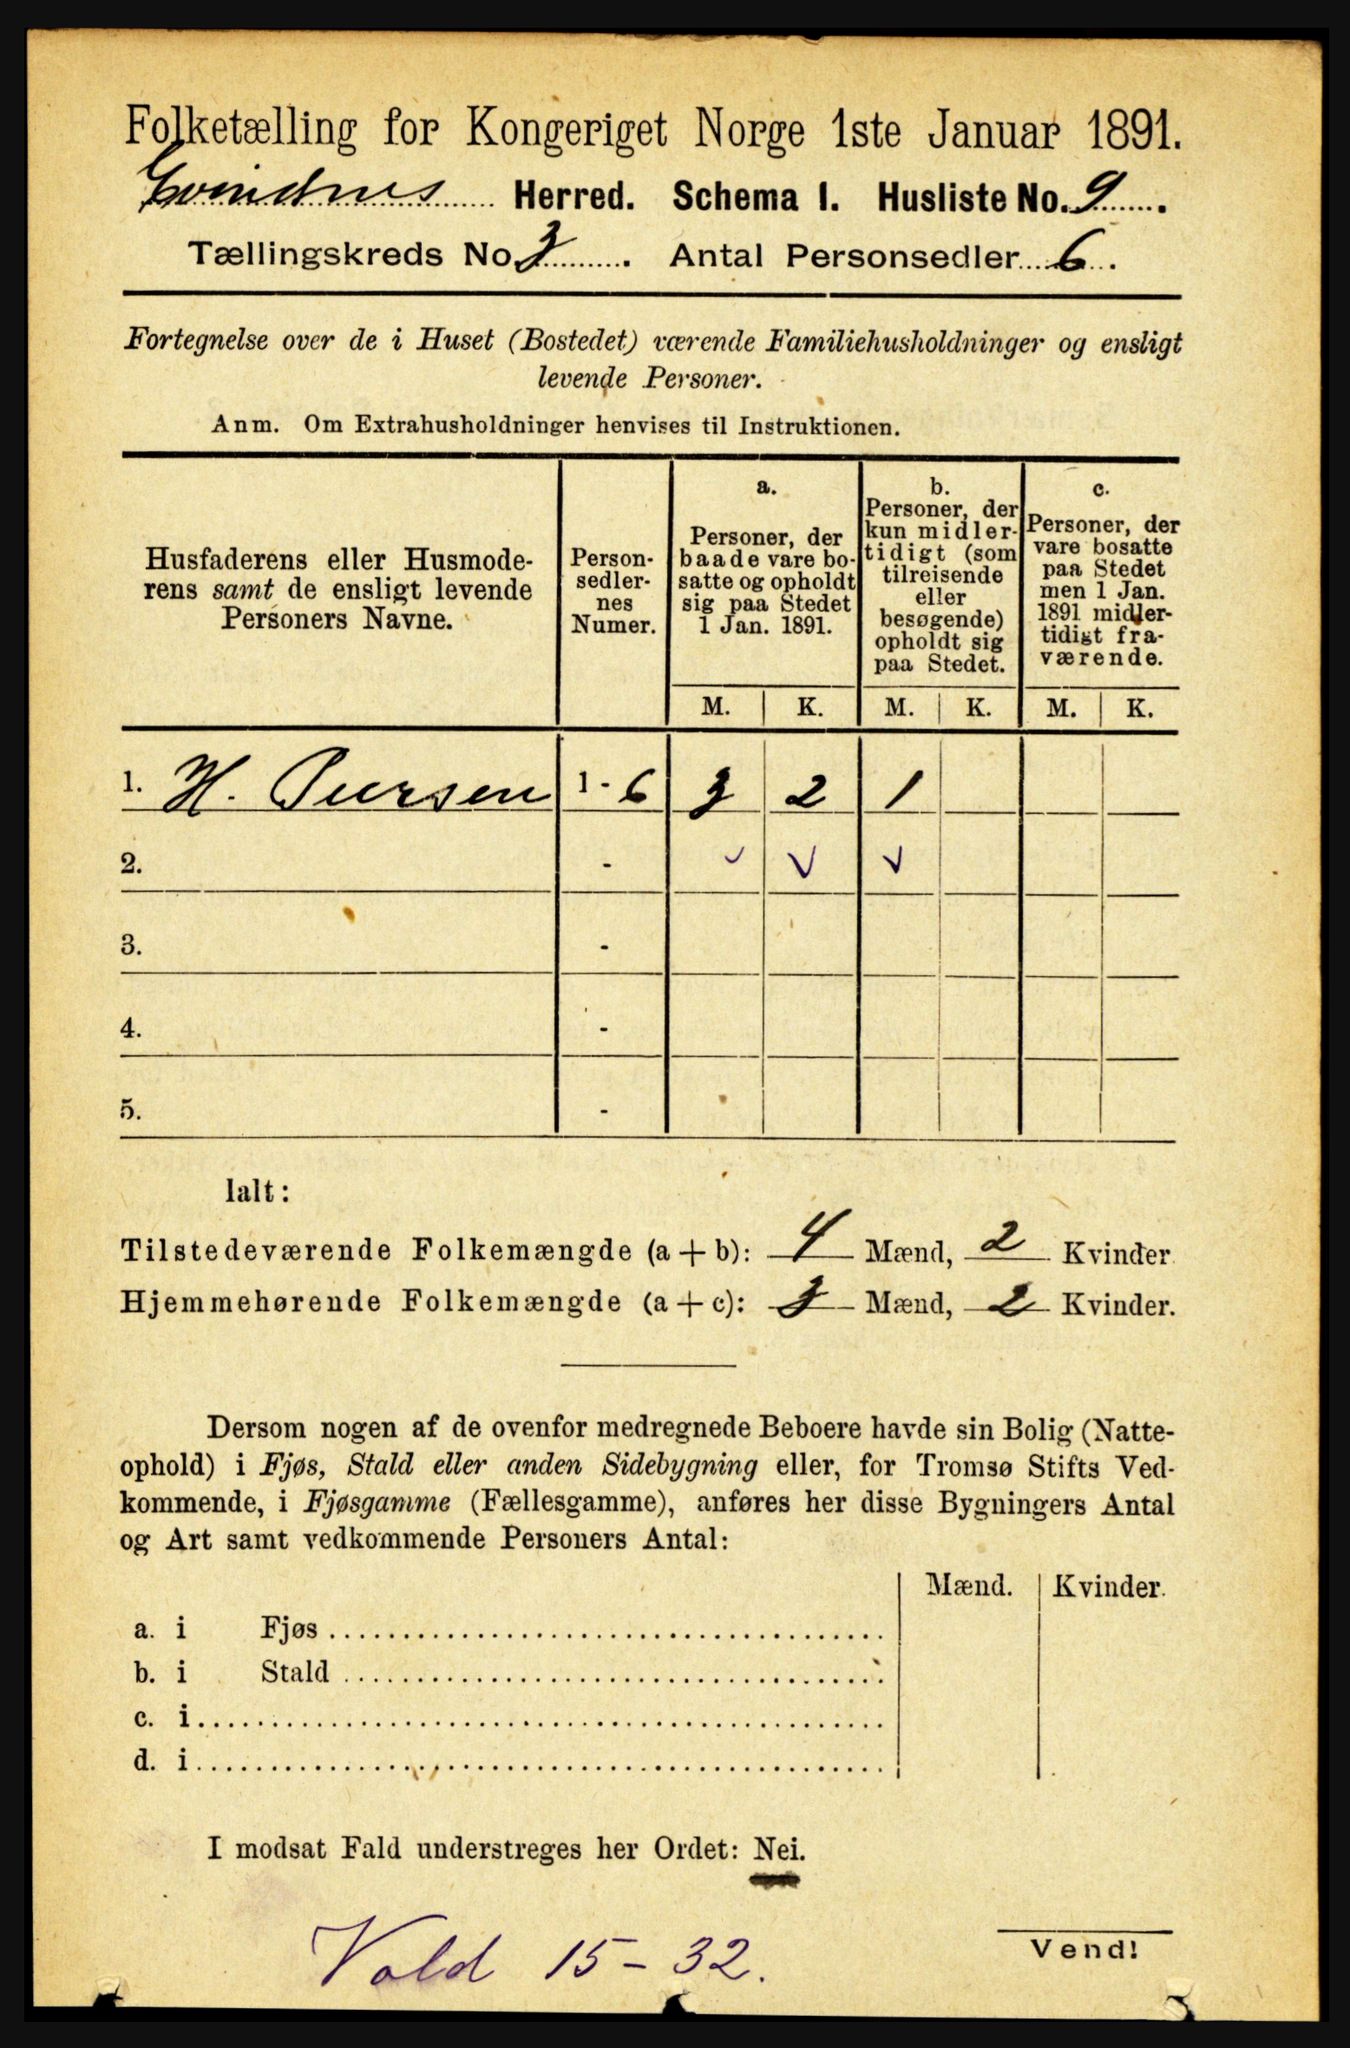 Folketælling for Kongeriget Norge 1ste Januar 1891.
Evindnes Herred. Schema I. Husliste No. 9.
Tællingskreds No. 3. Antal Personsedler 6.
Fortegnelse over de i Huset (Bostedet) værende Familiehusholdninger og ensligt
levende Personer.
Anm. Om Extrahusholdninger henvises til Instruktionen.
Husfaderens eller Husmode-
rens samt de ensligt levende
Personers Navne.
Person-
sedler-
nes
Numer.
a.
Personer, der
baade vare bo-
satte og opholdt
sig paa Stedet
1 Jan. 1891.
b.
Personer, der
kun midler-
tidigt (som
tilreisende
eller
besøgende)
opholdt sig
paa Stedet.
c.
Personer, der
vare bosatte
paa Stedet
men 1 Jan.
1891 midler-
tidigt fra-
værende.
M. K. M. K. M. K.
1. H. Peersen 1 - 6 3 2 1
2. - ✓ ✓ ✓
3. -
4. -
5. -
Ialt:
Tilstedeværende Folkemængde (a + b): 4 Mænd, 2 Kvinder.
Hjemmehørende Folkemængde (a + c): 3 Mænd, 2 Kvinder.
Dersom nogen af de ovenfor medregnede Beboere havde sin Bolig (Natte-
ophold) i Fjøs, Stald eller anden Sidebygning eller, for Tromsø Stifts Ved-
kommende, i Fjøsgamme (Fællesgamme), anføres her disse Bygningers Antal
og Art samt vedkommende Personers Antal:
Mænd. Kvinder.
a. i Fjøs
b. i Stald
c. i
d. i
I modsat Fald understreges her Ordet: Nei.
Vold 15 - 32.
Vend!